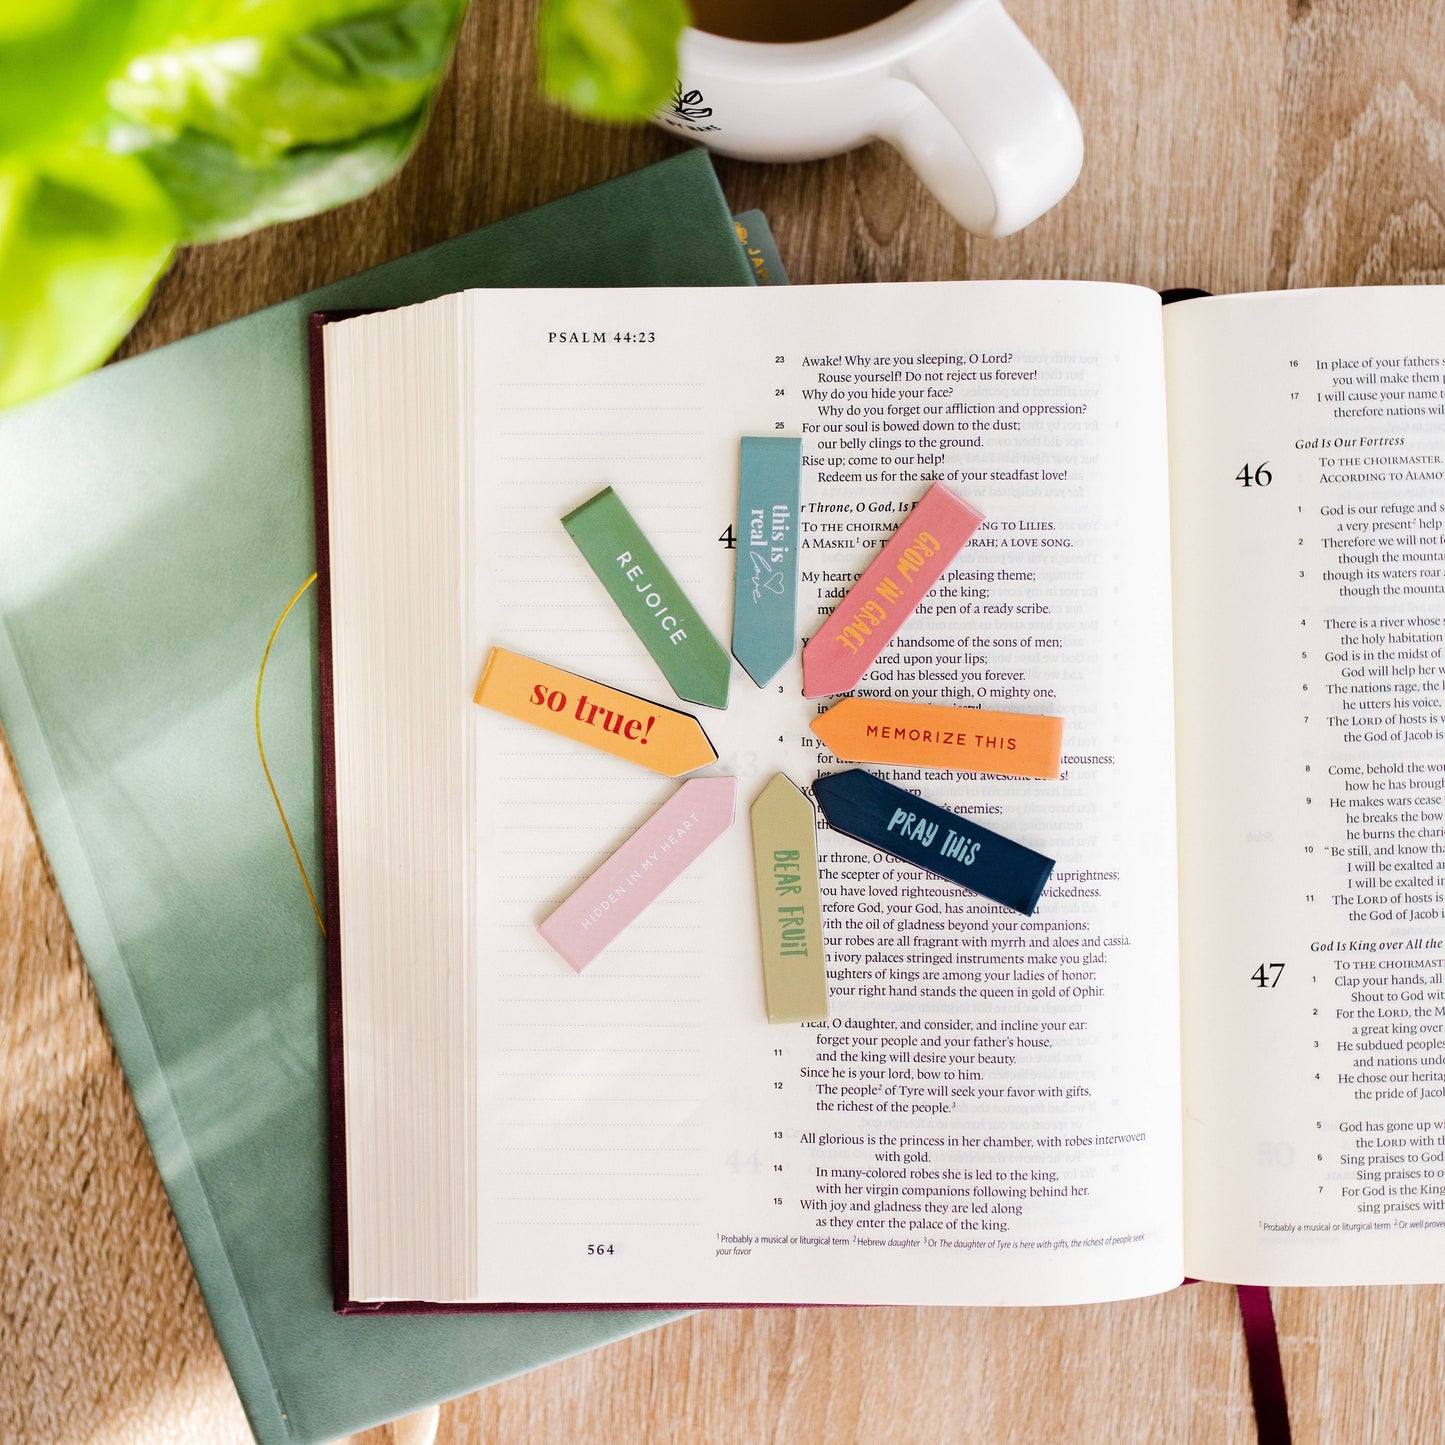 MY NAME
PSALM 44:23
23 Awake! Why are you sleeping, O Lord?
Rouse yourself! Do not reject us forever!
24 Why do you hide your face?
Why do you forget our affliction and oppression?
25 For our soul is bowed down to the dust;
our belly clings to the ground.
Rise up; come to our help!
Redeem us for the sake of your steadfast love!
Throne, O God, Is
TO THE CHOIRMA TO LILIES.
A MASKIL1 OF A LOVE SONG.
My heart pleasing theme;
I to the king;
my the pen of a ready scribe.
handsome of the sons of men;
upon your lips;
God has blessed you forever.
3 your sword on your thigh, O mighty one,
in
4 In
for
hand teach you
enemies;
throne, O
The scepter of your uprightness;
you have loved righteousness wickedness.
God, your God, has anointed
with the oil of gladness beyond your companions;
your robes are all fragrant with myrrh and aloes and cassia.
ivory palaces stringed instruments make you glad;
daughters of kings are among your ladies of honor;
your right hand stands the queen in gold of Ophir.
Hear, O daughter, and consider, and incline your ear:
forget your people and your father's house,
11 and the king will desire your beauty.
Since he is your lord, bow to him.
12 The people2 of Tyre will seek your favor with gifts,
the richest of the people.3
13 All glorious is the princess in her chamber, with robes interwoven
with gold.
14 In many-colored robes she is led to the king,
with her virgin companions following behind her.
15 With joy and gladness they are led along
as they enter the palace of the king.
1 Probably a musical or liturgical term 2 Hebrew daughter 3 Or The daughter of Tyre is here with gifts, the richest of people seek
your favor
564
REJOICE
this is
real
love
GROW IN GRACE
so true!
MEMORIZE THIS
HIDDEN IN MY HEART
BEAR FRUIT
PRAY THIS
16 In place of your fathers
you will make them
17 I will cause your name
therefore nations
God Is Our Fortress
46 TO THE CHOIRMASTER.
ACCORDING TO
1 God is our refuge and
a very present2 help
2 Therefore we will not
though the
3 though its waters roar
though the
4 There is a river whose
the holy habitation
5 God is in the midst of
God will help her
6 The nations rage, the
he utters his voice,
7 The LORD of hosts is
the God of Jacob is
8 Come, behold the
how he has
9 He makes wars cease
he breaks the bow
he burns the
10 "Be still, and know
I will be exalted
I will be exalted
11 The LORD of hosts is
the God of Jacob
God Is King over All the
47 TO THE
1 Clap your hands, all
Shout to God
2 For the LORD, the
a great king over
3 He subdued peoples
and nations
4 He chose our
the pride of
5 God has gone up
the LORD with
6 Sing praises to God
Sing praises to
7 For God is the
sing praises
1 Probably a musical or liturgical term 2 Or well